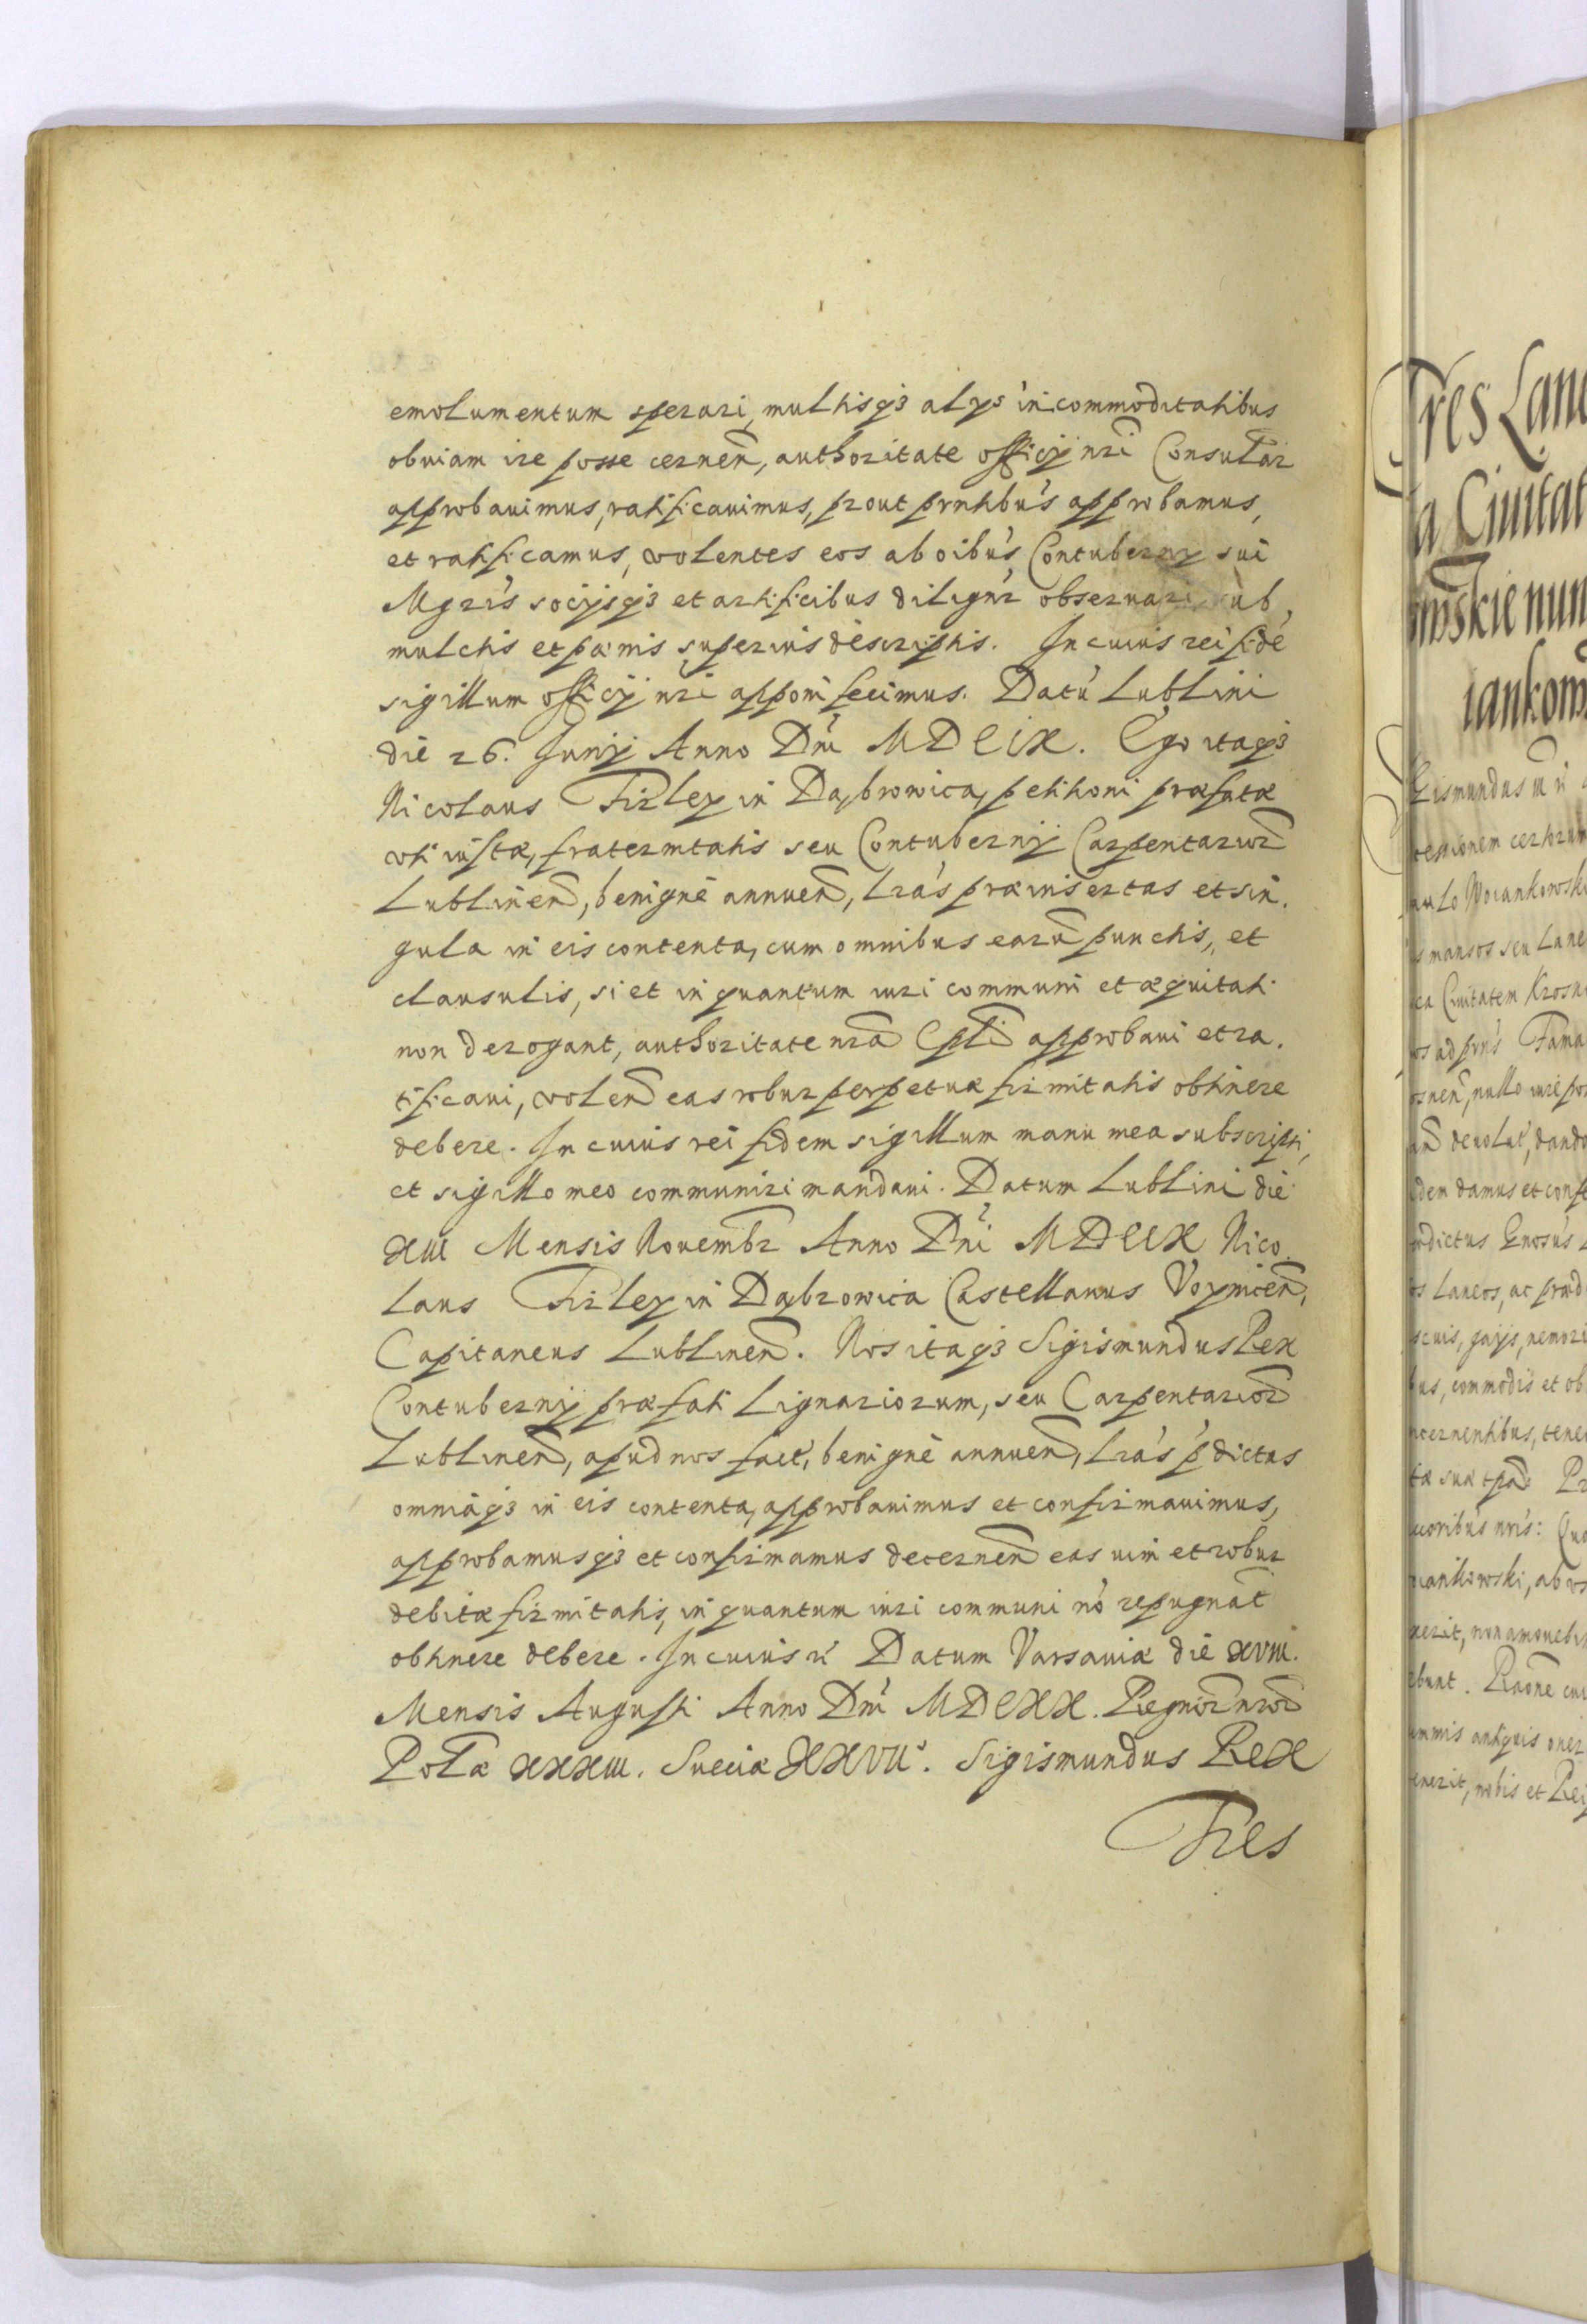 emolumentum sperari, multisqȝ alys incommoditatibus
obviam ire posse cernen̄, authoritate officij nri Consular
approbauimus, ratificauimus, prout prntibus approbamus,
et ratificamus, volentes eos ab oibus Contuberny sui
Mgris socijsqȝ et artificibus diligntr obseruari sub
mulctis et pœnis superius descriptis. In cuius rei fidē
sigillum officij nri apponi fecimus. Datū Lublini
die 26. Junij Anno Dni MDCIX. Ego itaqȝ
Nicolaus Firley in Dąbrowica, petitioni præfatæ
vti iustæ, fraternitatis seu Contubernij Carpentarior̄
Lublinen̄, benignè annuen̄, Lras præinsertas et sin.
gula in eis contenta, cum omnibus earū punctis, et
clausulis, si et in quantum iuri communi et æquitati
non derogant, authoritate nrā Cptli approbaui et ra.
tificaui, volen̄ eas robur perpetuæ firmitatis obtinere
debere. In cuius rei fidem sigillum manu mea subscripsi,
et sigillo meo communiri mandaui. Datum Lublini die
XIII Mensis Nouembr Anno Dni MDCIX Nico
laus Firley in Dąbrowica Castellanus Voynicen̄,
Capitaneus Lublinen̄. Nos itaqȝ Sigismundus Rex
Contubernij præfati Lignariorum, seu Carpentarior̄
Lublinen̄, apud nos fact, benignè annuen̄, Lras pdictas
omniaqȝ in eis contenta, approbauimus et confirmauimus,
approbamusqȝ et confirmamus decernen̄ eas uim et robur
debitæ firmitatis, in quantum iuri communi nō repugnāt
obtinere debere. In cuius r̄i Datum Varsauiæ die XVIII.
Mensis Augusti Anno Dni MDCXX. Regnor̄ nror̄
Polæ XXXIII. Sueciæ XXVII. Sigismundus Rex
Tres
Tres Lane
a Ciuitat
nun
iankow
gismundus
cerhorum
aulo Wocankowski
s mansos seu Lane
ca Ciuitatem Krosn
os ad prns Fama
nullo iure
deuolut, dando
dem damus et const
dictus Gnosus
os Laneos, ac præd
scuis, gajjs, nemori
us, commodis et ob
ncernentibus, tene
tæ suæ
oribus nris: Quo
iankowski, ab
xerit, non amouebi
bunt. Raōne
mnis antiquis oner
enerit, nobis et Rei